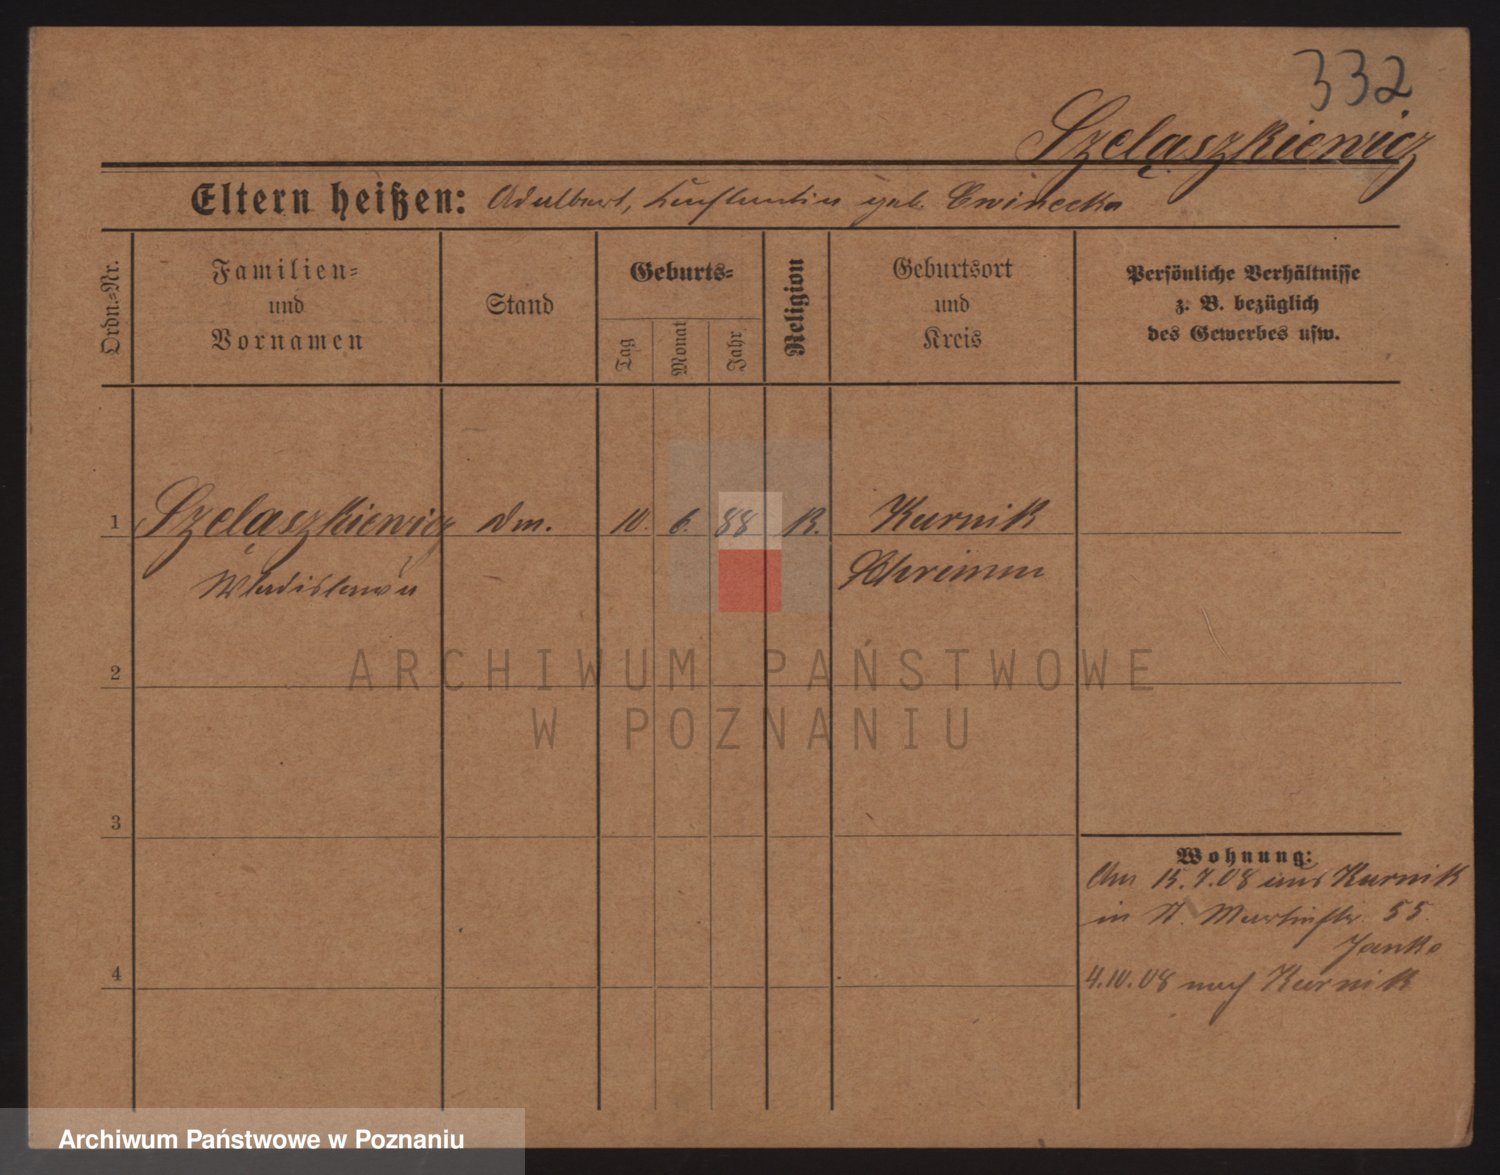 332
Szeląszkiewicz
Eltern heißen: Adalbert, Konstantia geb. Cwinecka
Ordn.-Nr.
Familien-
und
Vornamen
Stand
Geburts-
Tag
Monat
Jahr
Religion
Geburtsort
und
Kreis
Persönliche Verhältnisse
z. B. bezüglich
des Gewerbes usw.
1 Szeląszkiewicz 10. 6. 88 K. Kurnik
Wladislawa Schrimm
2
ARCHIWUM PAŃSTWOWE
W POZNANIU
3
Wohnung:
15.7.08 aus Kurnik
in St. Martinstr. 55.
Janka
4
4.10.08 nach Kurnik
Archiwum Państwowe w Poznaniu